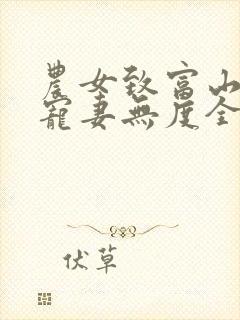 農女致富山
寵妻無度全
伏草